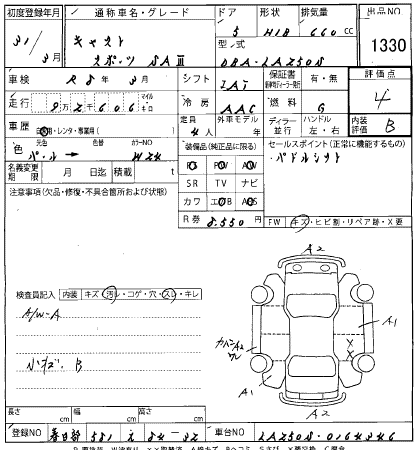 初度登録年月 通称車名・グレード ドア 形状 排気量 出品NO
31/3月 キャスト スポーツ SAⅢ 5 H/B 660cc 1330
型式 DBA-LA250S
車検 R8年3月 シフト IAT 保証書 有・無 評価点 4
走行 マイル キロ 冷房 AAC 燃料 G
車歴 自家用・レンタ・事業用( ) 定員 4人 外車モデル ディラー 並行 ハンドル 左・右 内装評価 B
色 パール → 色替 カラーNO W24 装備品(純正品に限る) セールスポイント(正常に機能するもの)
名義変更期限 月 日迄 積載 t PS PW AW パドルシフト
注意事項(欠品・修復・不具合箇所および状態) SR TV ナビ
カワ エアB ABS
R券 8,550円 FW キズ・ヒビ割・リペア跡・X要
A2
検査員記入 内装 キズ・汚レ・コゲ・穴・スレ・キレ
A/W-A
A1
カバンA2
ワレ
X
X
小キズ B
A1
A2
長さ cm 幅 cm 高さ cm
登録NO 春日部 581 車台NO LA250S-